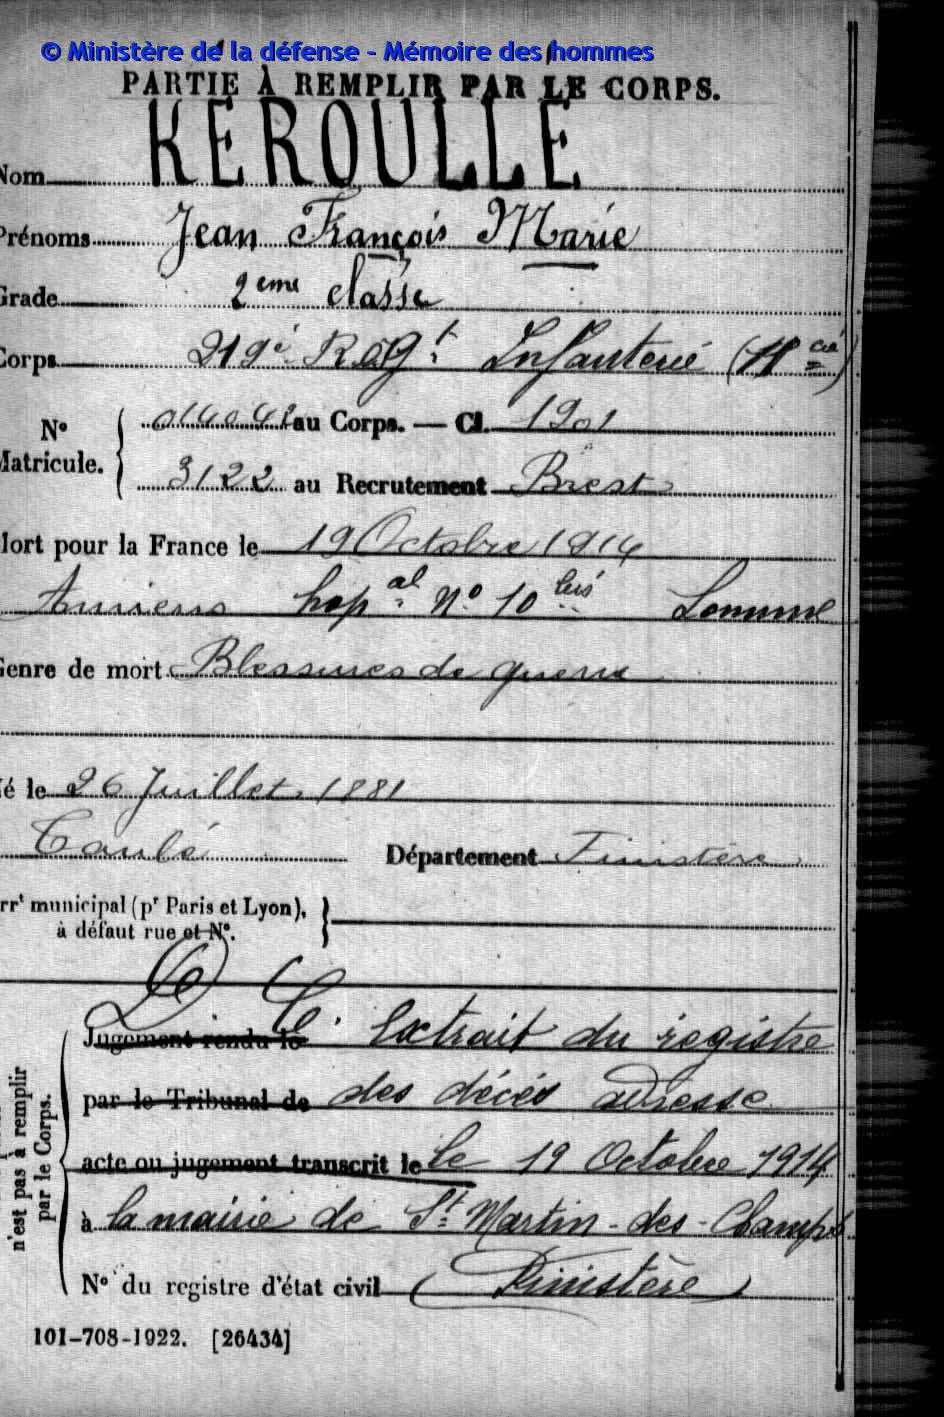 © Ministère de la défense - Mémoire des hommes
PARTIE À REMPLIR PAR LE CORPS.
Nom KEROULLE
Prénoms Jean François Marie
Grade 2eme classe
Corps 219e Regt Infanterie (11e cie)
No Matricule. { 014042 au Corps. — Cl. 1901
3122 au Recrutement Brest
Mort pour la France le 19 Octobre 1914
Amiens hopal No 10 bis Somme
Genre de mort Blessures de guerre
Né le 26 Juillet 1881
Taulé Département Finistère
arrt municipal (pr Paris et Lyon), }
à défaut rue et No.
D. C.
Jugement rendu le Extrait du registre
par le Tribunal de des décés adressé
acte ou jugement transcrit le le 19 Octobre 1914
à la mairie de St Martin-des-Champs
No du registre d'état civil (Finistère)
n'est pas à remplir
par le Corps.
101-708-1922. [26434]